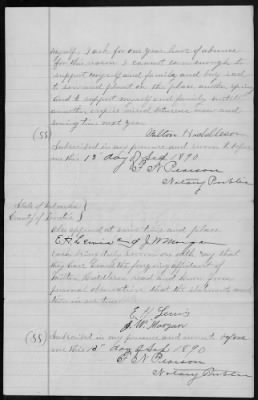 myself, I ask for one year leave of absence
for this reason I cannot earn enough to
support myself and family and buy seed
to sow and plant on the place another spring
and to support myself and family until
another crop is raised between now and
seeding time next year
Milton
(SS)
Subscribed in my presence and sworn to before
me this 13 day of Sept 1890
P. N. Pearson
Notary Public
State of Nebraska
County of
Also appeared at same time and place
E. H. Lewis and J. W. Morgan
who being duly sworn on oath say that
they have heard the foregoing affidavit of
Milton read and know from
personal observation that the statements
are true
E. H. Lewis
J. W. Morgan
(SS)
Subscribed in my presence and sworn to before
me this 13 day of Sept 1890
P. N. Pearson
Notary Public